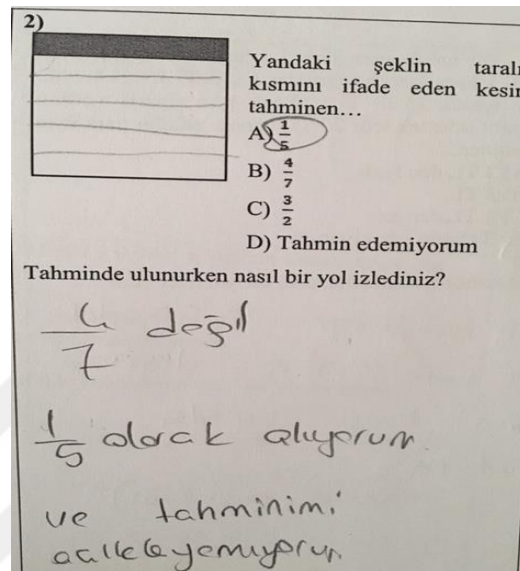 2)
Yandaki şeklin taralı
kısmını ifade eden kesir
tahminen...
A) 1/5
B) 4/7
C) 3/2
D) Tahmin edemiyorum
Tahminde ulunurken nasıl bir yol izlediniz?
4/7 değil
1/5 olarak alıyorum
ve tahminimi